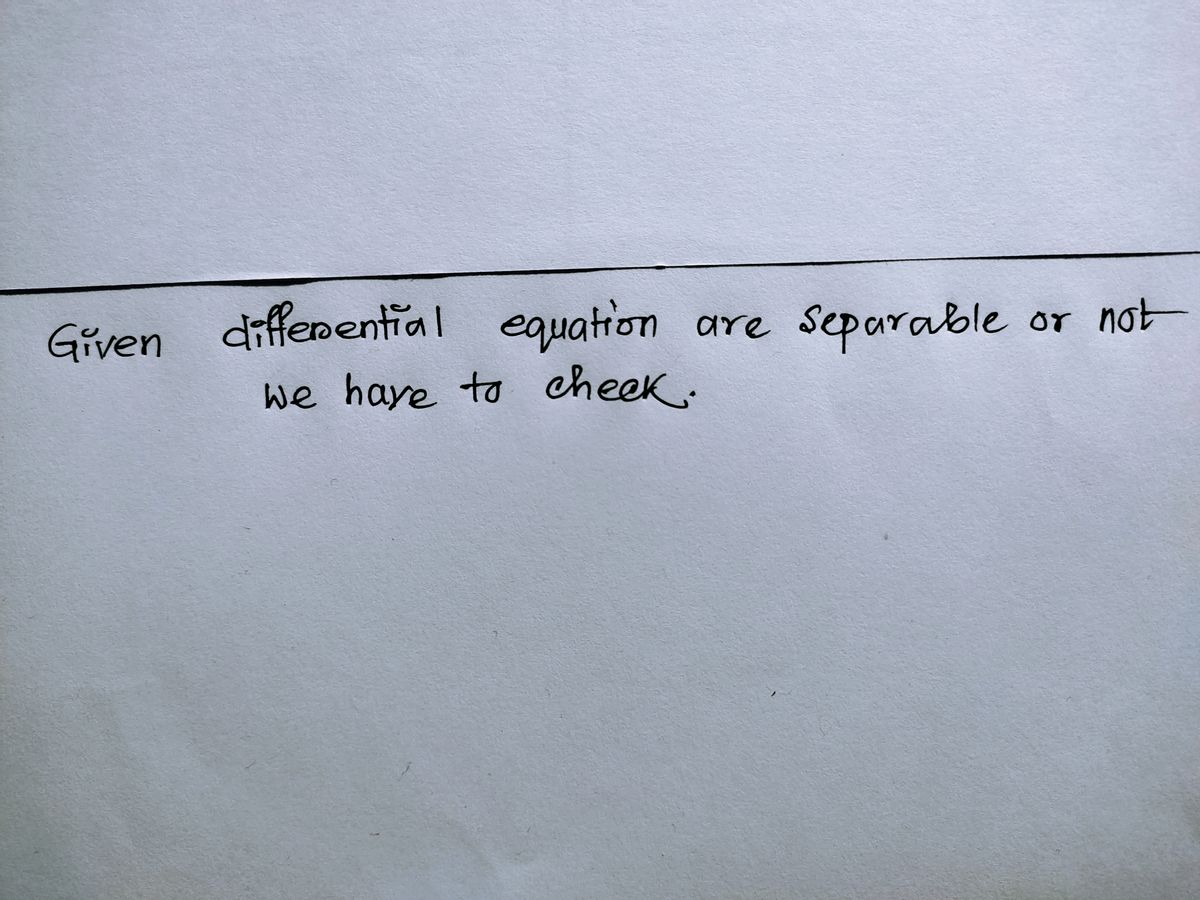 Given differential equation are separable or not
we have to check.